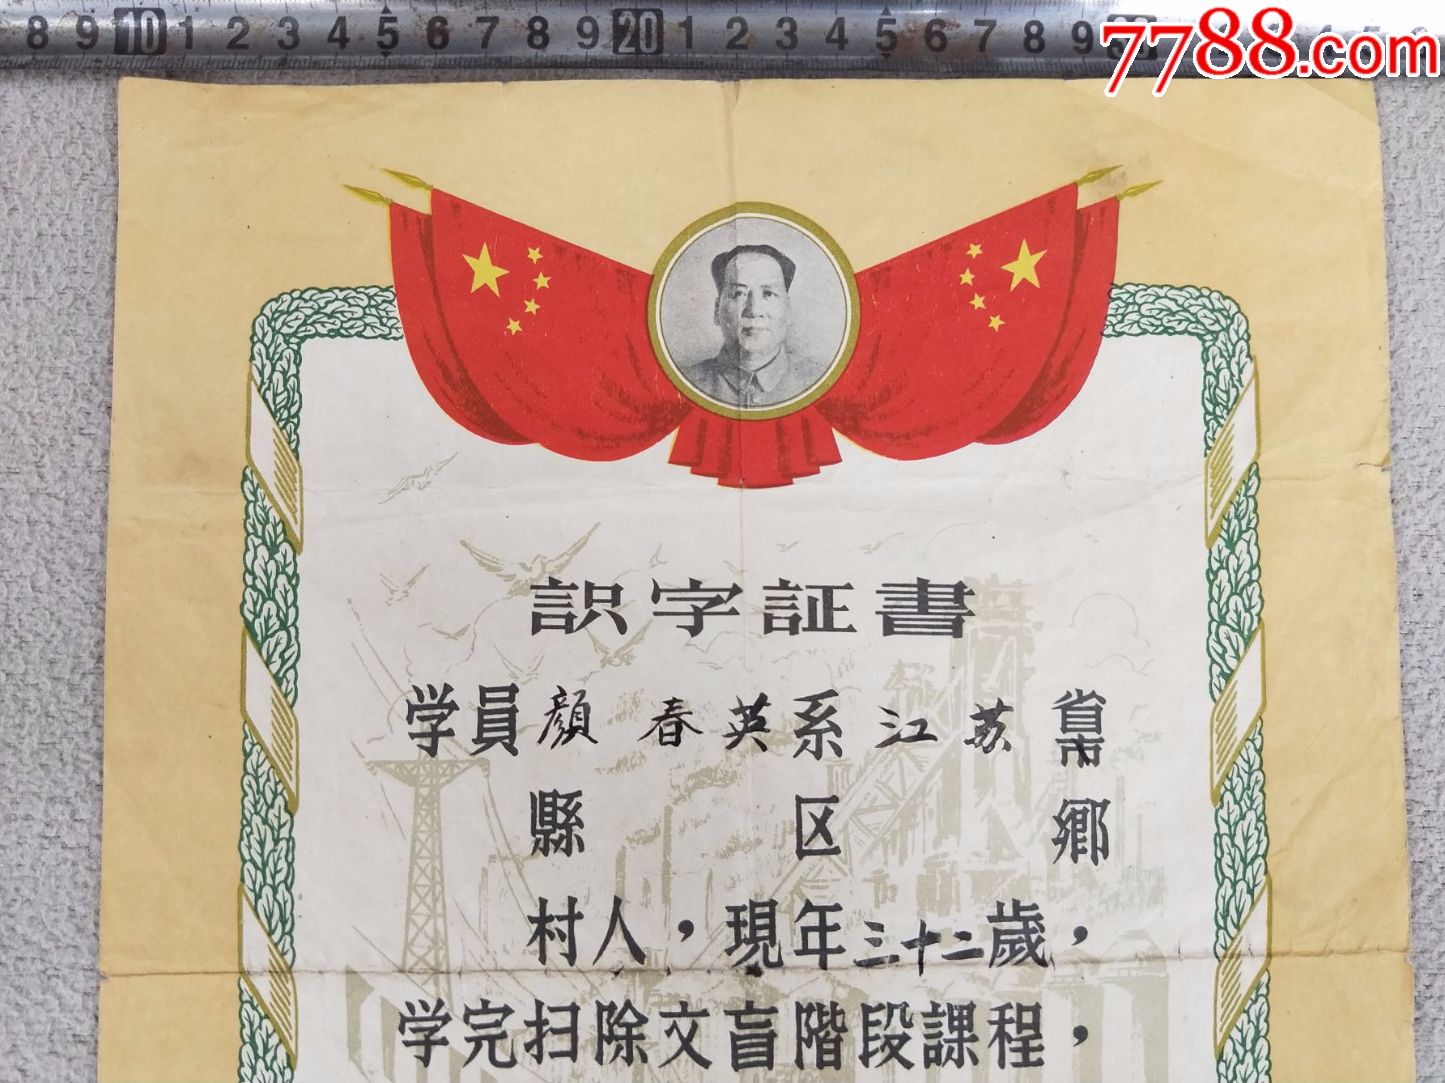 8 9 10 1 2 3 4 5 6 7 8 9 20 1 2 3 4 5 6 7 8 9
7788.com
識字証書
学員顔春英系江苏省市
縣 区 鄉
村人，現年三十二歲，
学完扫除文盲階段課程，